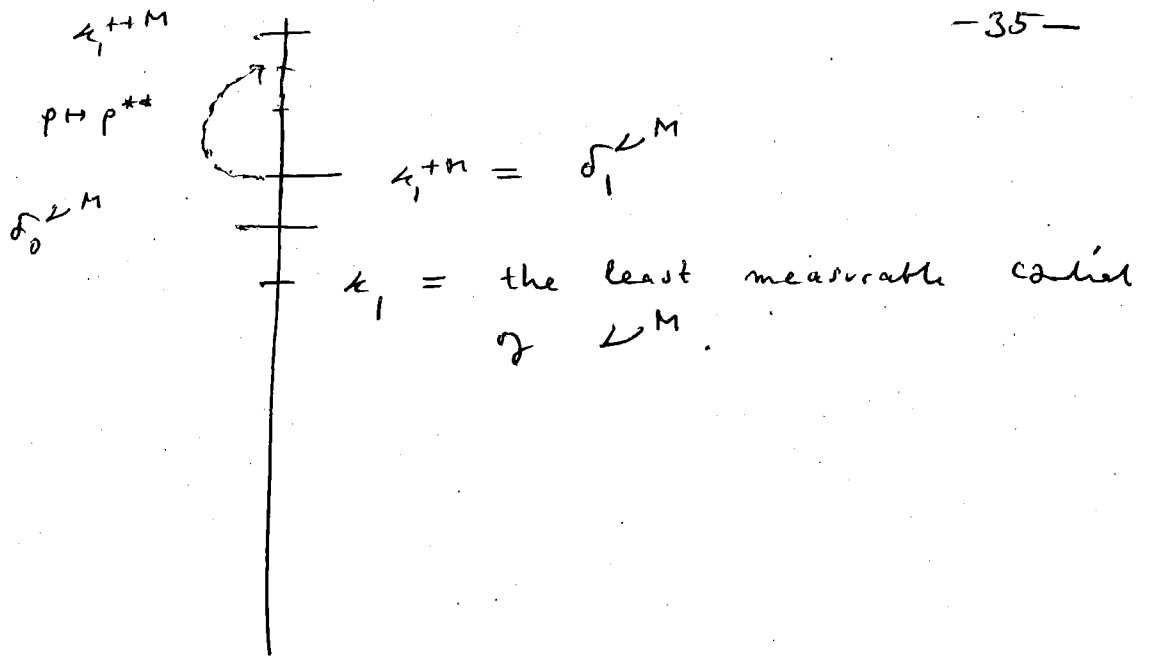 κ₁⁺⁺ᴹ
-35-
ρ ↦ ρ**
κ₁⁺ᴹ = δ₁^𝒱^M
δ₀^𝒱^M
κ₁ = the least measurable cardinal
of 𝒱^M.